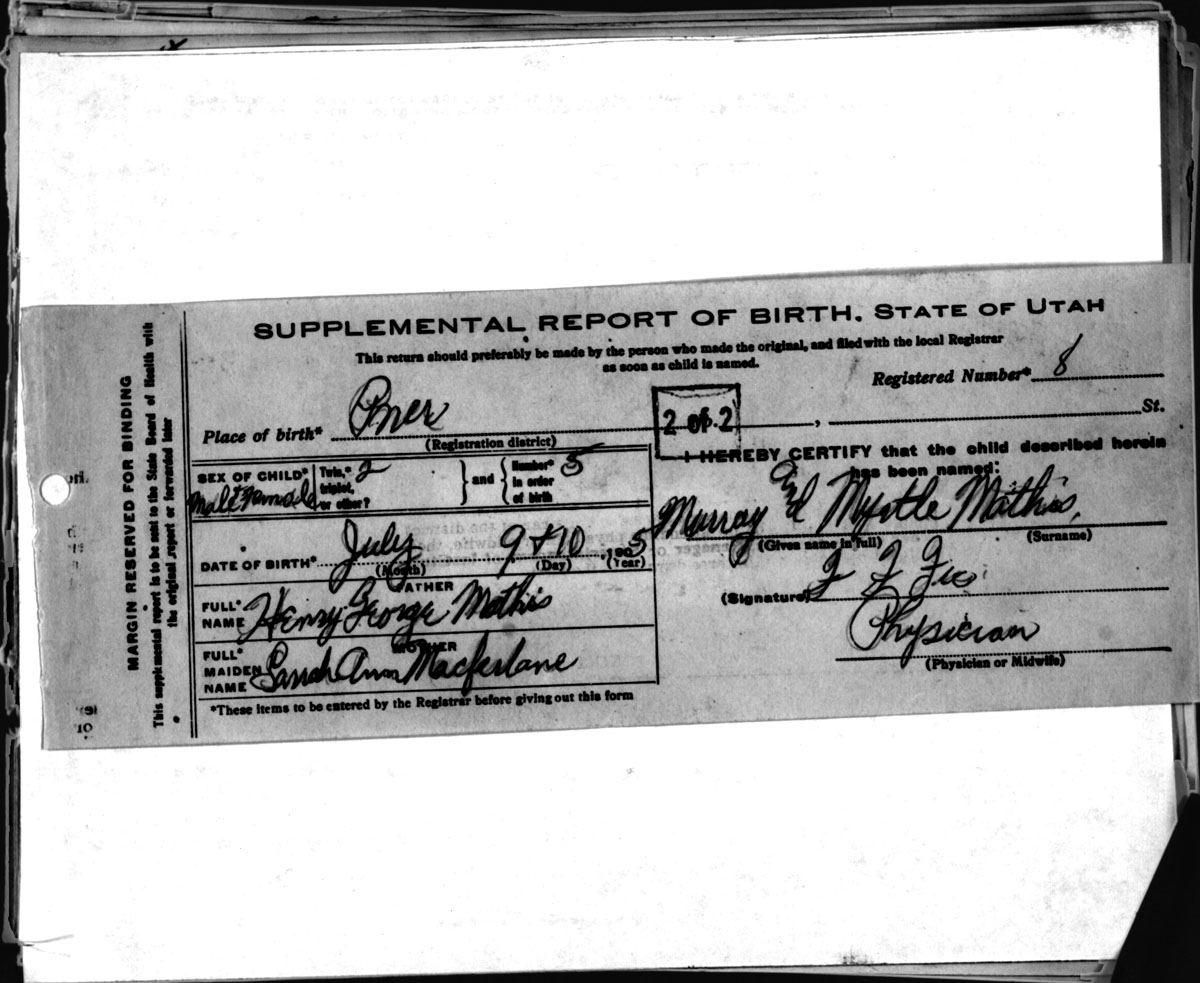 SUPPLEMENTAL REPORT OF BIRTH. STATE OF UTAH
This return should preferably be made by the person who made the original, and filed with the local Registrar
as soon as child is named.
Registered Number* 8
Place of birth*
(Registration district)
2 of 2
, St.
SEX OF CHILD* Male + Female
Twin,* triplet, or other? 2
and
Number* in order of birth 5
DATE OF BIRTH* July 9 + 10, 1905
(Month) (Day) (Year)
FATHER
FULL* NAME Henry George Mathis
MOTHER
FULL* MAIDEN NAME Sarah Ann Macferlane
*These items to be entered by the Registrar before giving out this form
I HEREBY CERTIFY that the child described herein
has been named:
Murray And Myrtle Mathis,
(Given name in full) (Surname)
(Signature)
Physician
(Physician or Midwife)
MARGIN RESERVED FOR BINDING
This supplemental report is to be sent to the State Board of Health with
the original report or forwarded later